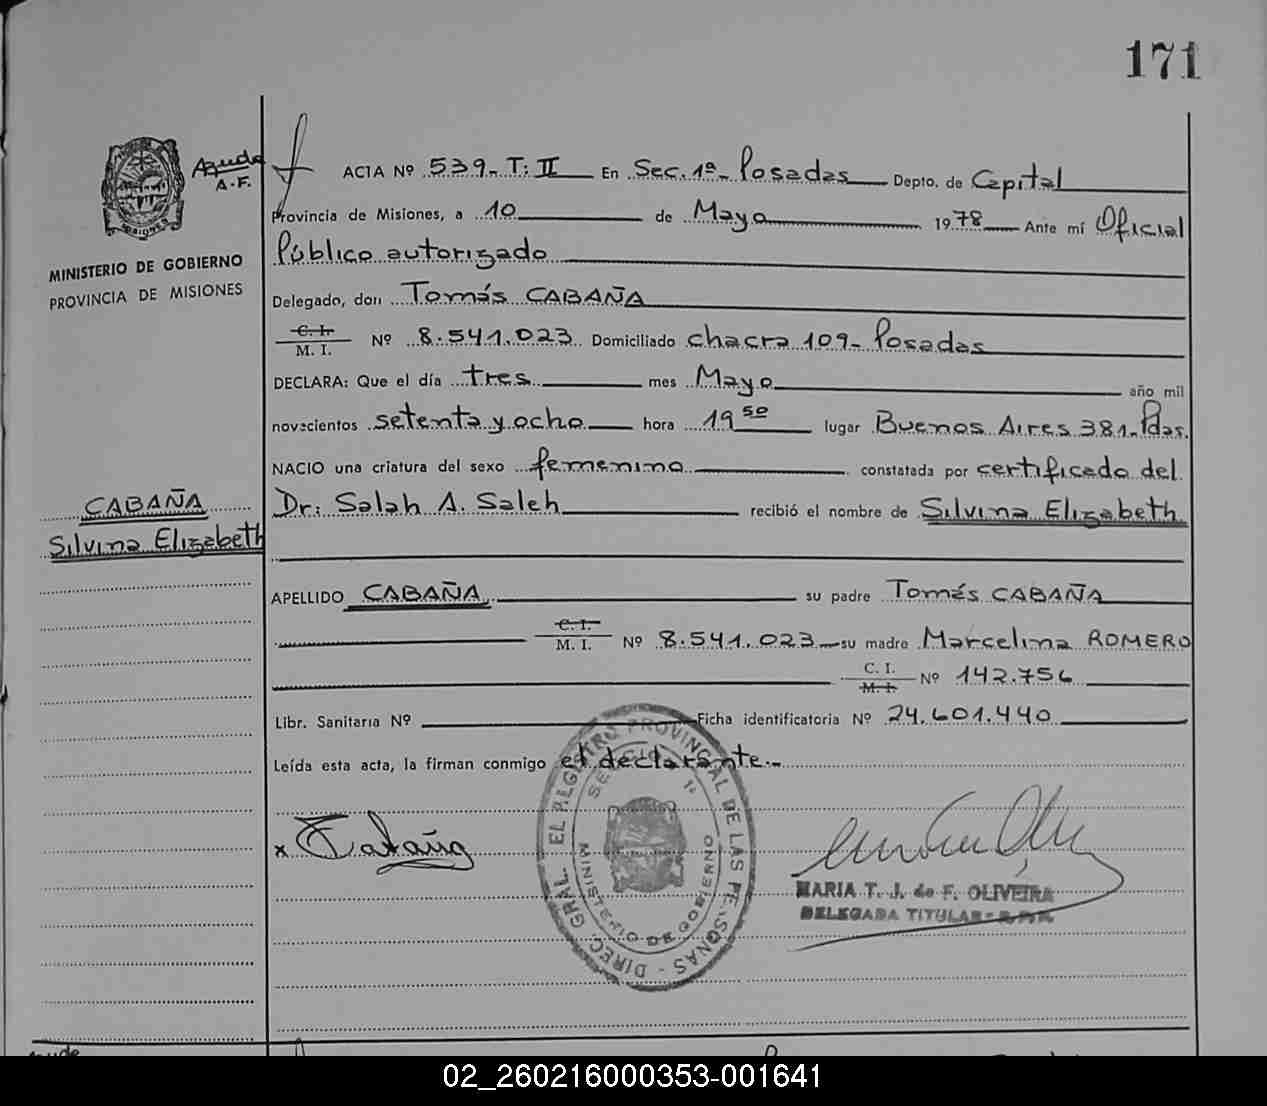 171
Ayude
A.F.
MINISTERIO DE GOBIERNO
PROVINCIA DE MISIONES
ACTA Nº 539- T: II En Sec. 1º- Posadas Depto. de Capital
Provincia de Misiones, a 10 de Mayo 1978 Ante mí Oficial
Público autorizado
Delegado, don Tomás CABAÑA
C. I.
M. I. Nº 8.541.023 Domiciliado chacra 109- Posadas
DECLARA: Que el día tres mes Mayo año mil
novecientos setenta y ocho hora 19 50 lugar Buenos Aires 381- Pdas.
NACIO una criatura del sexo femenino constatada por certificado del
Dr: Salah A. Saleh recibió el nombre de Silvina Elizabeth
CABAÑA
Silvina Elizabeth
APELLIDO CABAÑA su padre Tomás CABAÑA
C. I.
M. I. Nº 8.541.023 su madre Marcelina ROMERO
C. I.
M. I. Nº 142.756
Libr. Sanitaria Nº Ficha identificatoria Nº 24.601.440
Leída esta acta, la firman conmigo el declarante.-
x TCabaña
DIREC. GRAL. EL REGISTRO PROVINCIAL DE LAS PERSONAS
SECCION 1ª
MINISTERIO DE GOBIERNO
MARIA T. J. de F. OLIVEIRA
DELEGADA TITULAR
02_260216000353-001641